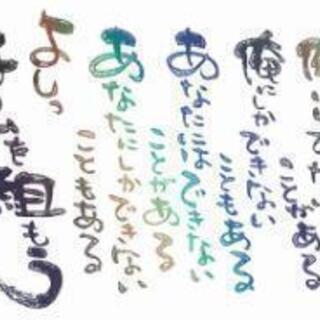 できない
ことがある
俺にしかできない
こともある
あなたにはできない
ことがある
あなたにしかできない
こともある
よしっ
を組もう